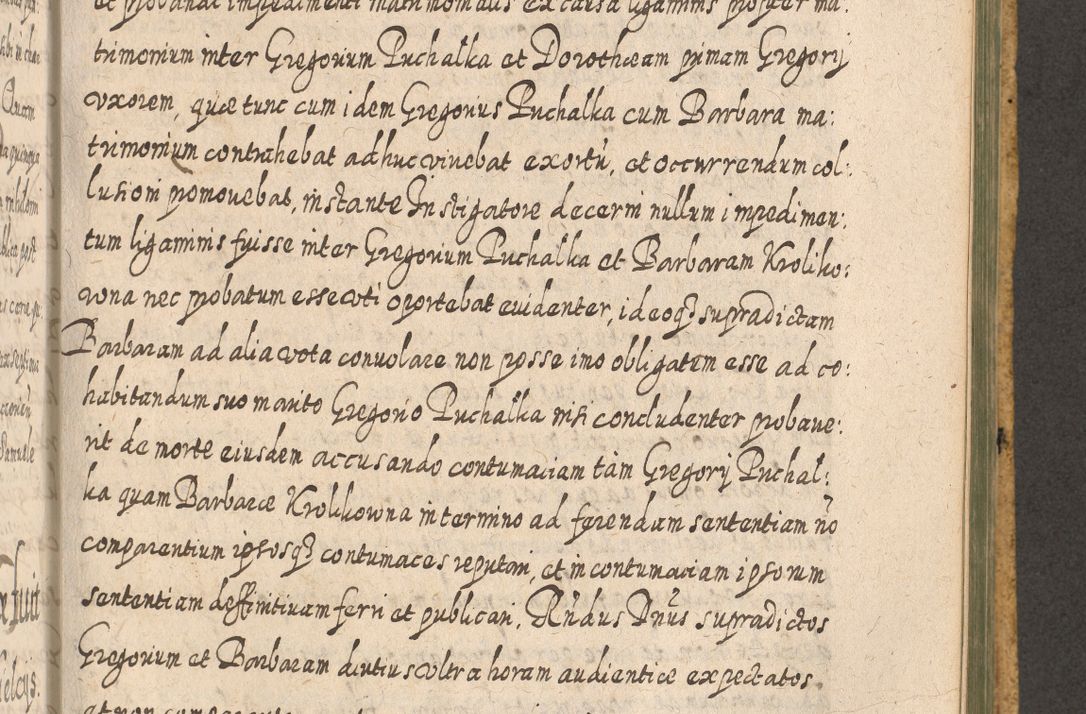 et probandi impedimenti matrimonialis ex causa ligaminis propter ma:
trimonium inter Gregorium Puchalka et Dorotheam primam Gregorij
vxorem, quæ tunc cum idem Gregorius Puchalka cum Barbara ma:
trimonium contrahebat adhuc viuebat exortũ, et occurrendum col:
lusioni promouebat, instante Instigatore decerni nullum impedimen:
tum ligaminis fuisse inter Gregorium Puchalka et Barbaram Kroliko:
wna nec probatum esse vti oportebat euidenter, ideoq₃ supradictam
Barbaram ad alia vota conuolare non posse imo obligatam esse ad co:
habitandum suo marito Gregorio Puchalka nisi concludenter probaue:
rit de morte eiusdem accusando contumaciam tàm Gregorij Puchal:
ka quam Barbaræ Krolikowna in termino ad ferendam sententiam nõ
comparentium ipsosq₃ contumaces reputari, et in contumaciam ipsorum
sententiam deffinitiuam ferri et publicari. Rñdus Dnũs supradictos
Gregorium et Barbaram diutius vltra horam audientiæ expectatos